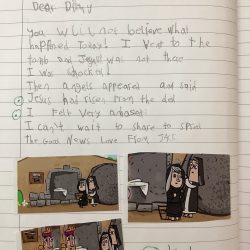 Dear Diary
You will not believe what
happened Today! I Went to the
tomb and Jesus was not thae
I was shocked!
Then angels appeared and said
Jesus had risen from the ded
I Felt Very amased
I can't wait to share to spred
the Good News Love From